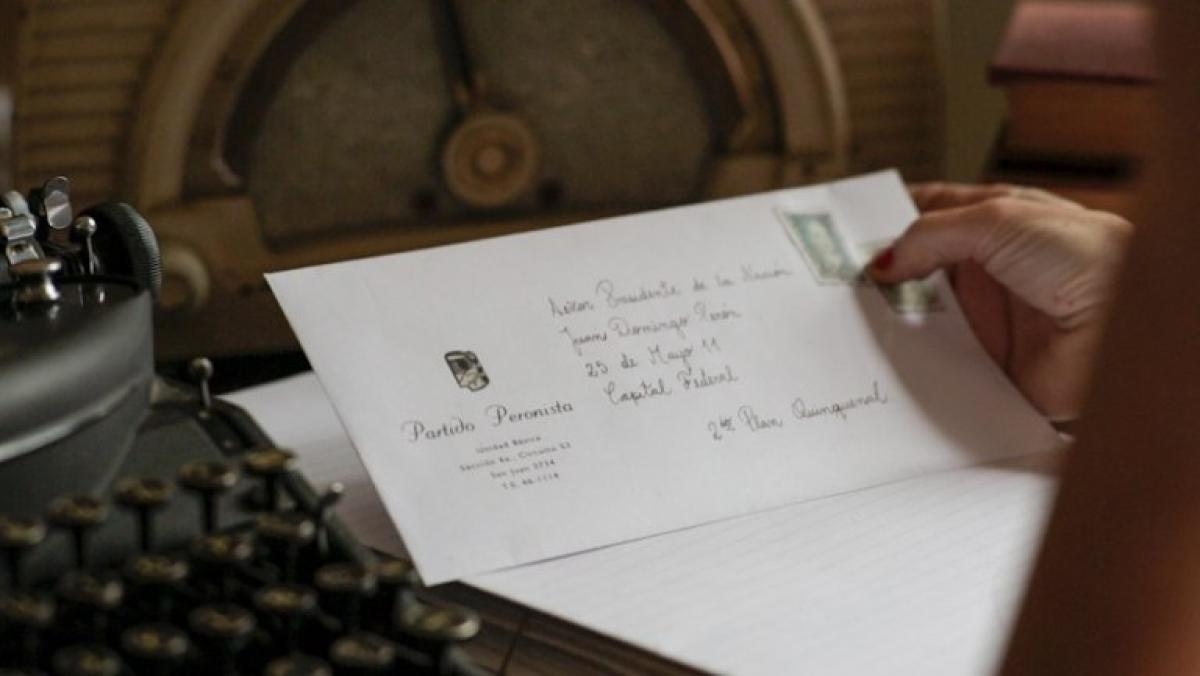 Presidente de la Nación
Juan Domingo Perón
25 de Mayo 11
Capital Federal
2do Plan Quinquenal
Partido Peronista
Unidad Básica
Sección 8a., Circuito
San Juan 3734
T.E.